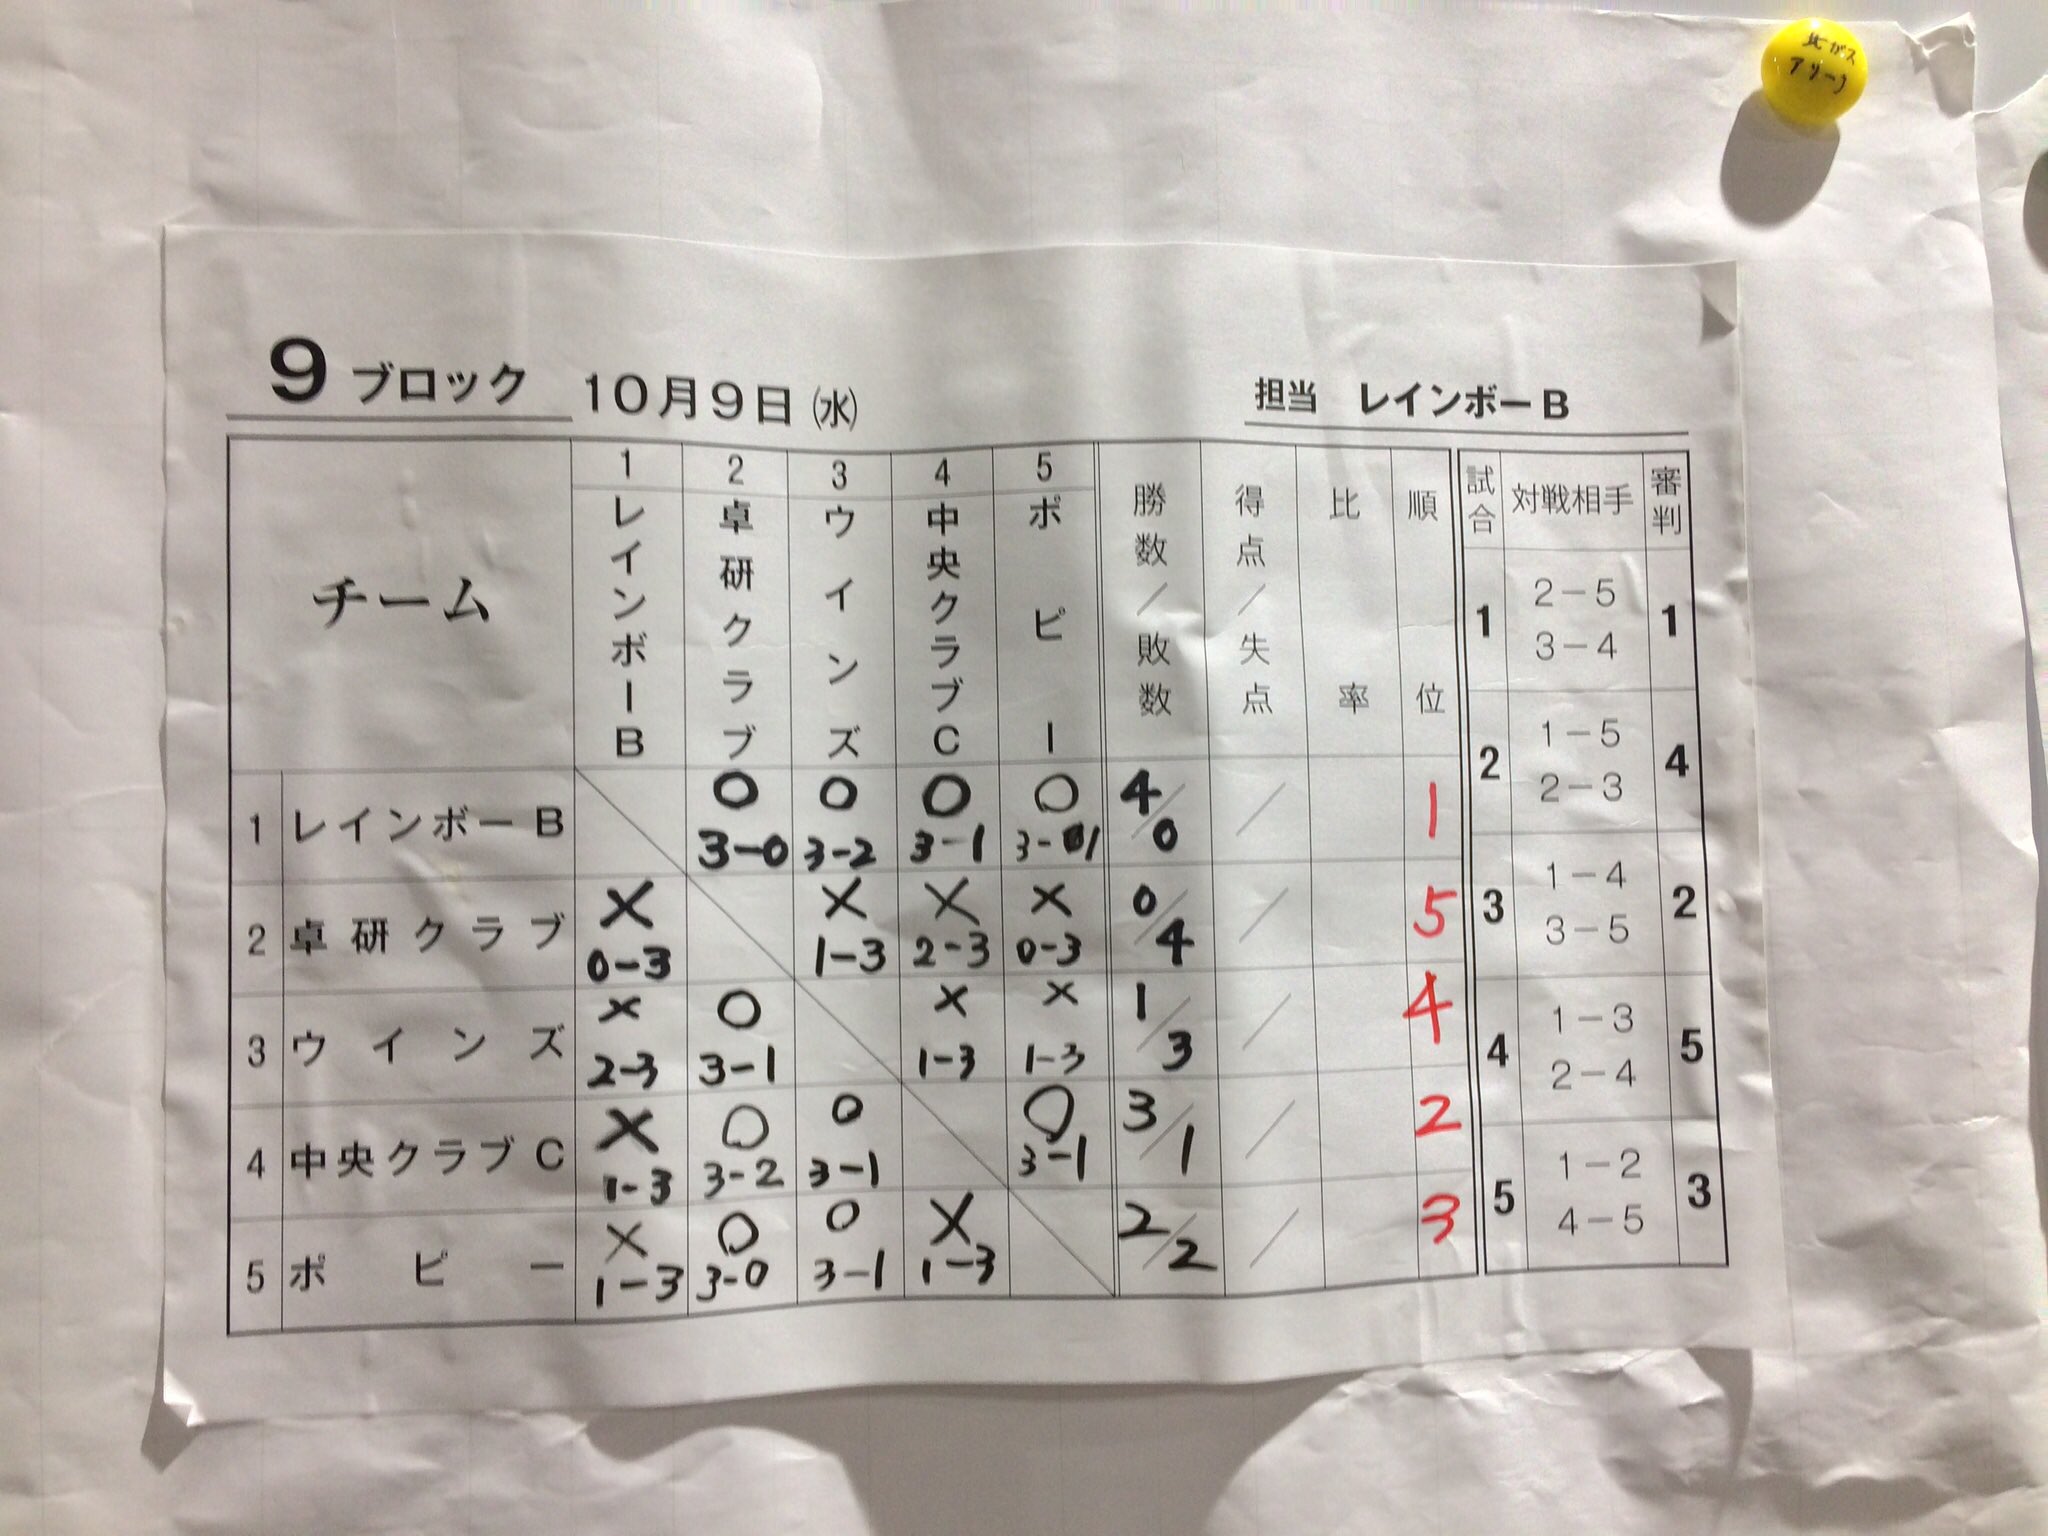 北ガス
アリーナ
9 ブロック 10月9日(水) 担当 レインボーB
チーム 1 レインボーB 2 卓研クラブ 3 ウインズ 4 中央クラブC 5 ポピー 勝数/敗数 得点/失点 比率 順位 試合 対戦相手 審判
1 レインボーB ○ 3-0 ○ 3-2 ○ 3-1 ○ 3-1 4/0 / 1
2 卓研クラブ × 0-3 × 1-3 × 2-3 × 0-3 0/4 / 5
3 ウインズ × 2-3 ○ 3-1 × 1-3 × 1-3 1/3 / 4
4 中央クラブC × 1-3 ○ 3-2 ○ 3-1 ○ 3-1 3/1 / 2
5 ポピー × 1-3 ○ 3-0 ○ 3-1 × 1-3 2/2 / 3
1 2-5 3-4 1
2 1-5 2-3 4
3 1-4 3-5 2
4 1-3 2-4 5
5 1-2 4-5 3